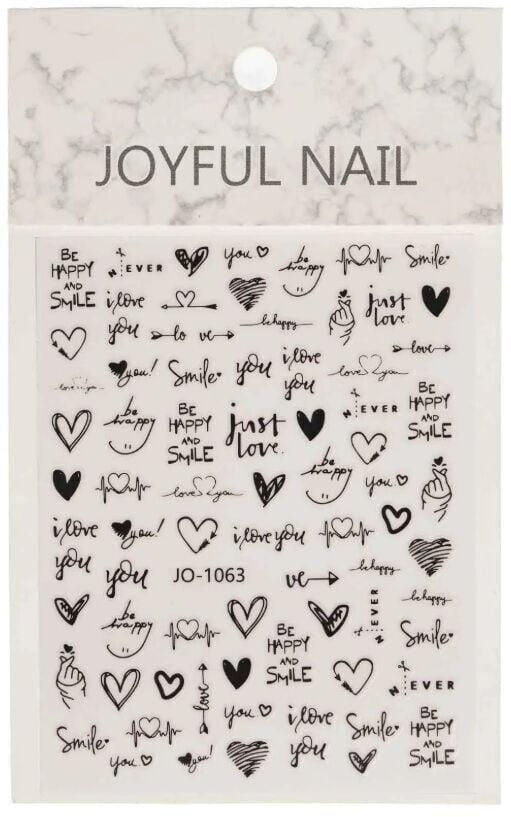 JOYFUL NAIL
BE HAPPY AND SMILE
NEVER
you
be happy
Smile
i love you
just love.
be happy
lo ve
love
you!
Smile
you
i love you
love you
love you
NEVER
BE HAPPY AND SMILE
be happy
BE HAPPY AND SMILE
just love.
be happy
you
love you
i love you
you!
i love you
you
JO-1063
ve
be happy
be happy
be happy
NEVER
Smile
BE HAPPY AND SMILE
love
NEVER
you
i love you
Smile
BE HAPPY AND SMILE
Smile
you
you!